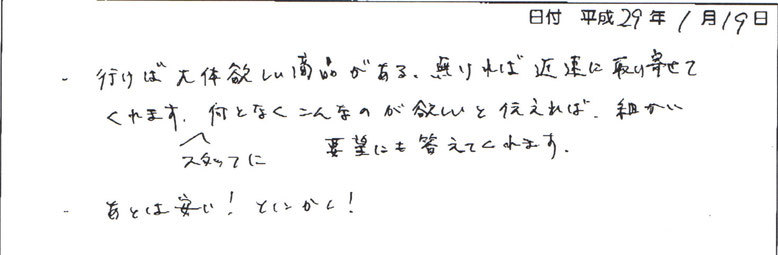 日付 平成29年1月19日
- 行けば大体欲しい商品がある。無ければ迅速に取り寄せて
くれます。何となくこんなのが欲しいと伝えれば、細かい
スタッフに 要望にも答えてくれます。
- あとは安い！とにかく！